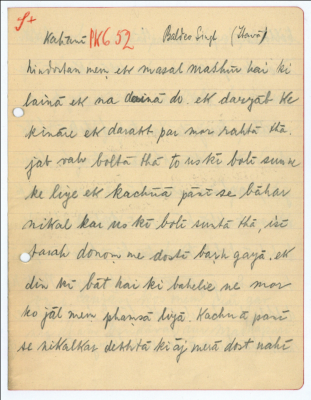 S+
Kahānī PK652 Baldeo Singh (Itavā)
hindostan meṃ ek masal mashūr hai ki
lainā ek na dainā do. ek daryāb ke
kināre ek darakt par mor rahtā thā.
jab vah boltā thā to us kī bolī sunne
ke liye ek kachūā pānī se bāhar
nikal kar us kī bolī suntā thā, isī
tarah donoṃ me dostī baṛh gayā. ek
din kī bāt hai ki bahelie ne mor
ko jāl meṃ phaṃsā liyā. Kachuā pānī
se nikalkar dekhtā ki āj merā dost nahī